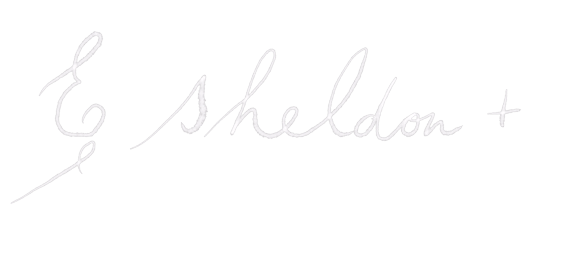 E Sheldon +